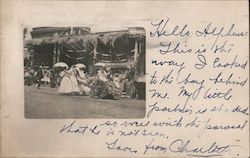 Hello, Hepheus
This is the
way I looked
to the bay behind
me. My little
partner is shaded
so well with the parasol
that he is not seen.
Love from Charlotte